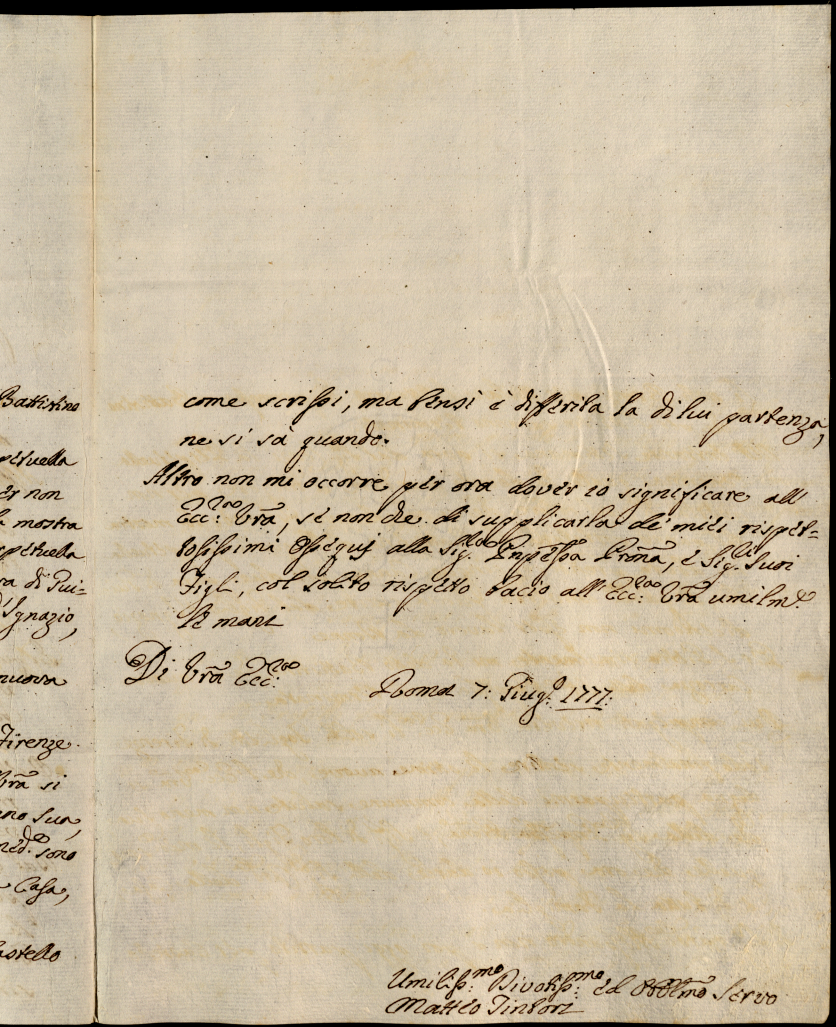 Battistino
petuella
er non
a mostra
spettuella
ra di Gui=
d'Ignazio,
nuova
Firenze.
Vrã si
ano Sua,
med.o sono
Casa,
astello
come scrissi, ma bensì è differita la di lui partenza,
ne si sà quando.
Altro non mi occorre per ora dover io significare all'
Ecc:za Vrã, se non che di supplicarla de miei rispet=
tosissimi Ossequj alla Sig.ra Pnpessa Pronã, e Sig.i Suoi
Figli, col solito rispetto bacio all'Ecc:za Vrã umilm.e
le mani
Di Vrã Ecc:za
Roma 7: Giug.o 1777.
Umiliss:mo Divotiss:mo ed Obblmo Servo
Matteo Tintori